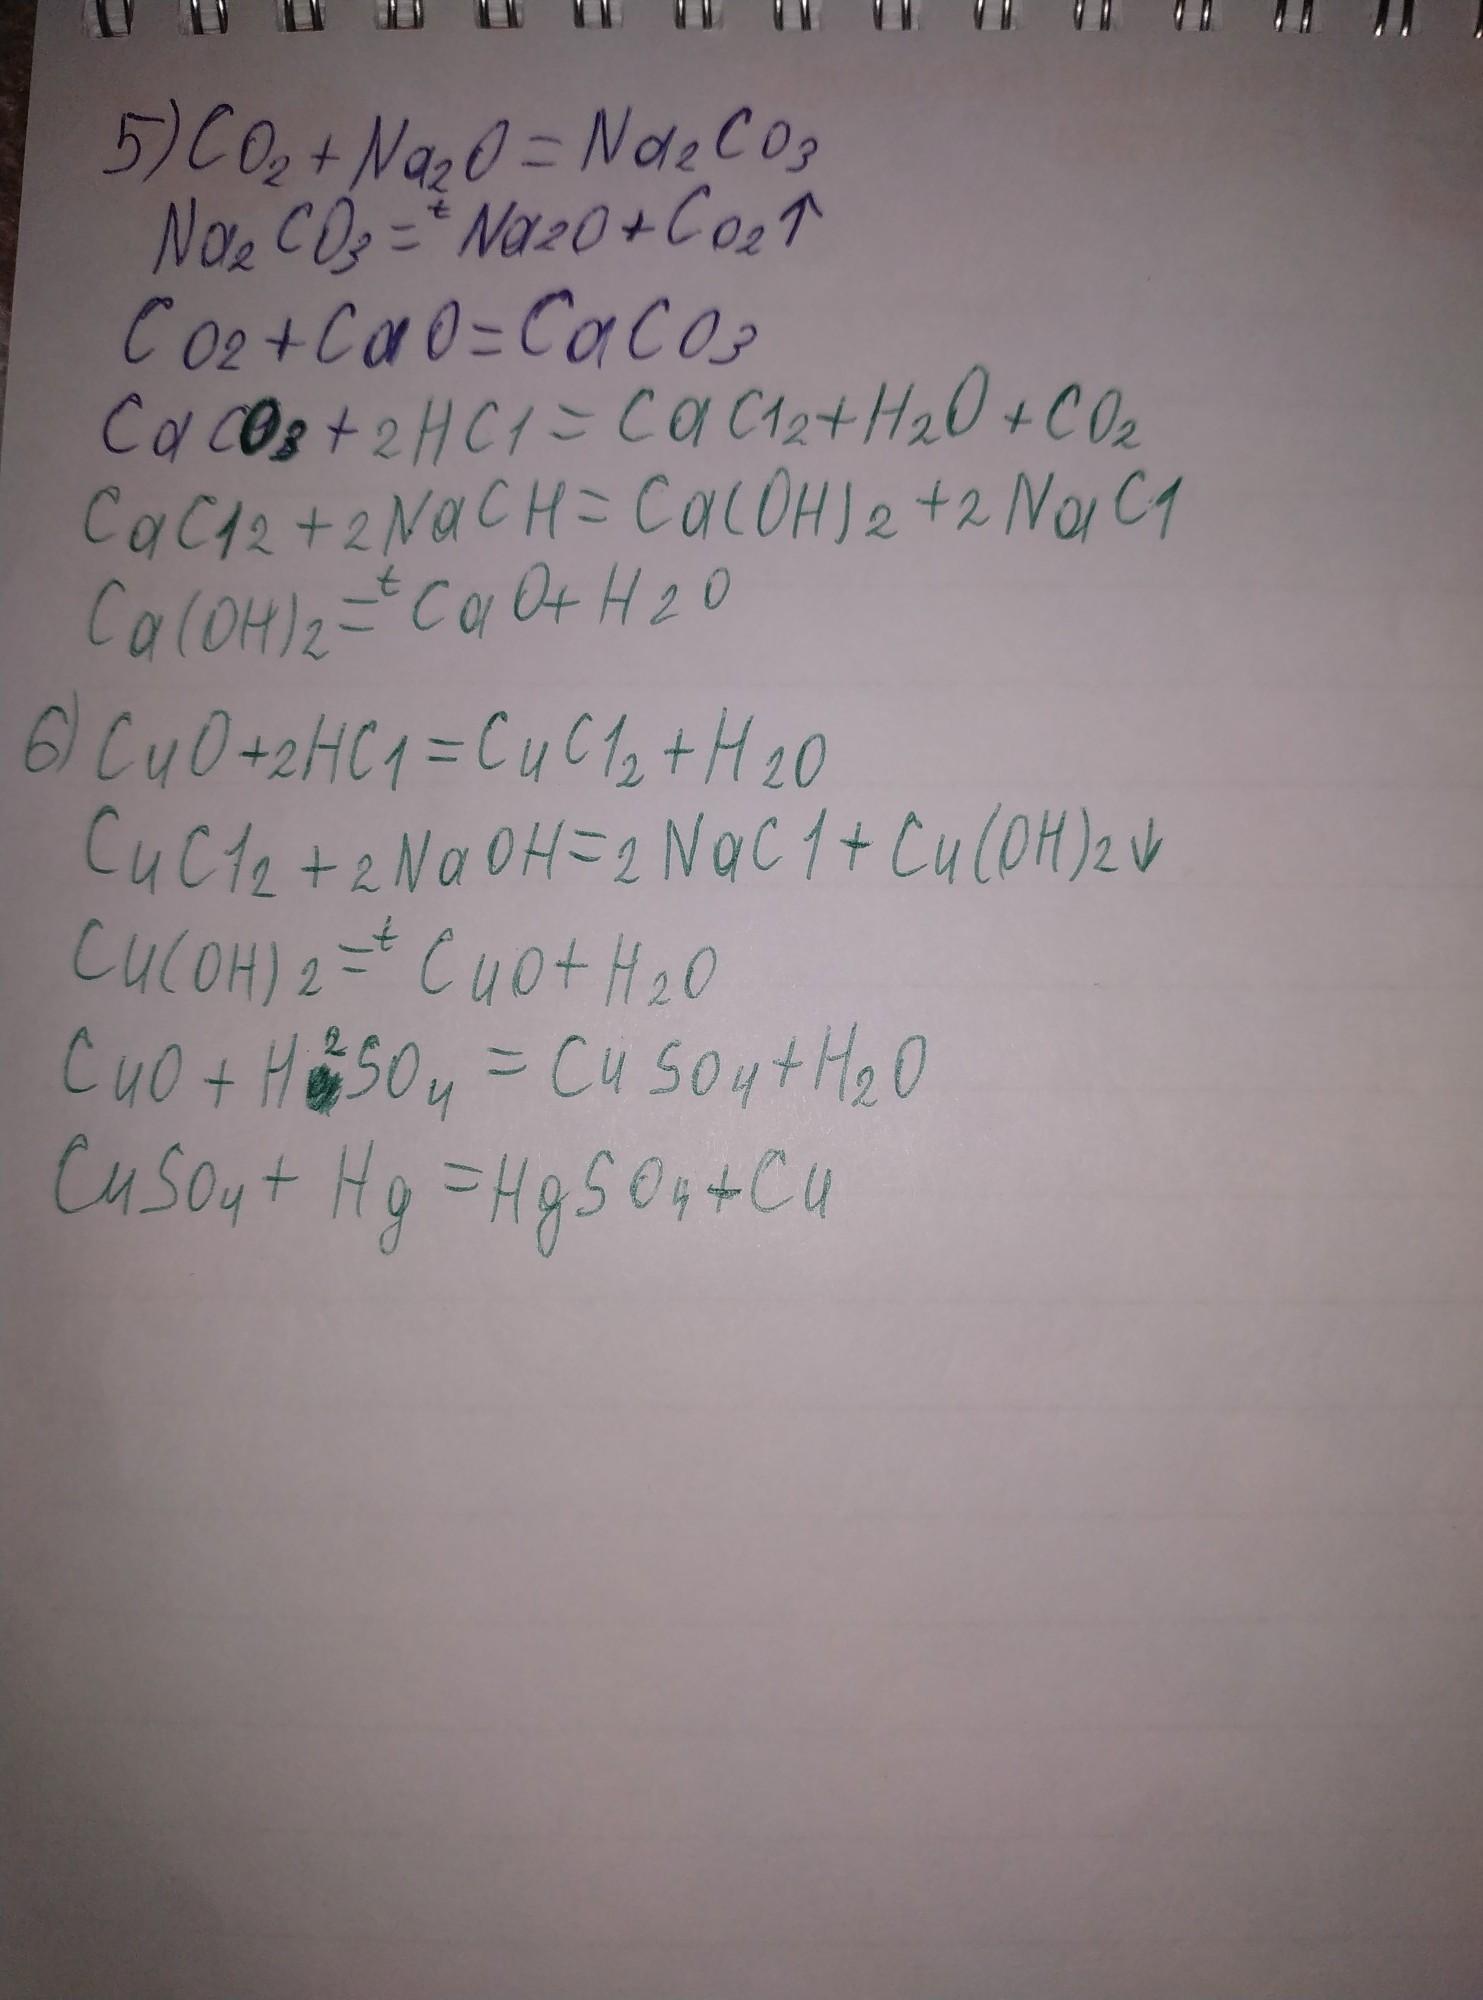 5) CO2 + Na2O = Na2CO3
Na2CO3 =t Na2O + CO2↑
CO2 + CaO = CaCO3
CaCO3 + 2HCl = CaCl2 + H2O + CO2
CaCl2 + 2NaCH = Ca(OH)2 + 2NaCl
Ca(OH)2 =t CaO + H2O
6) CuO + 2HCl = CuCl2 + H2O
CuCl2 + 2NaOH = 2NaCl + Cu(OH)2↓
Cu(OH)2 =t CuO + H2O
CuO + H2SO4 = CuSO4 + H2O
CuSO4 + Hg = HgSO4 + Cu